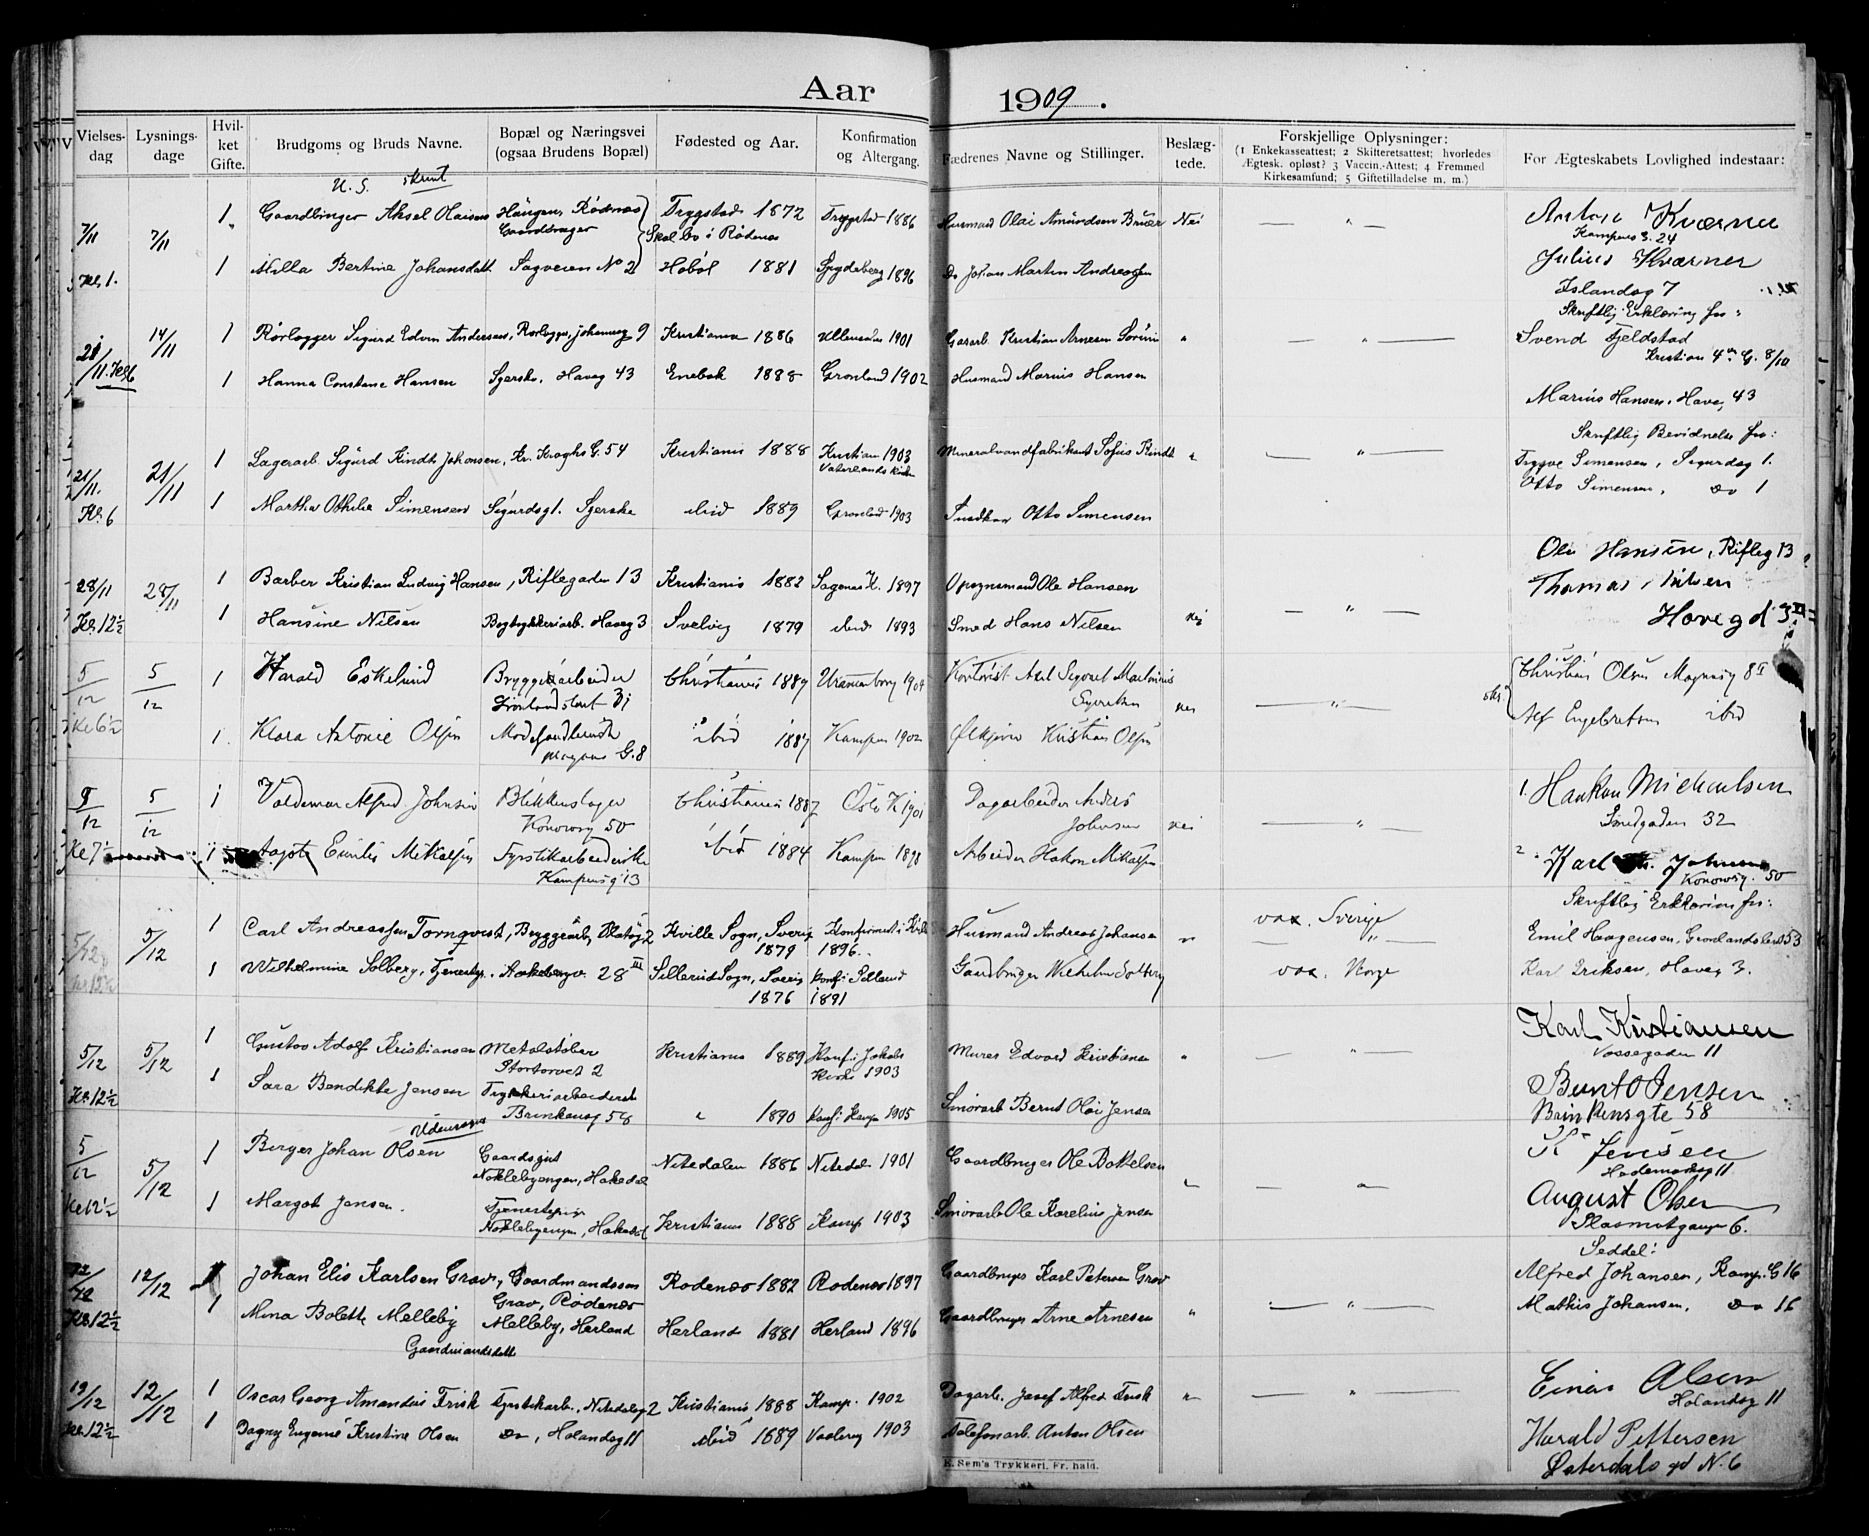 Aar 1909.
Vielses-dag
Lysnings-dage
Hvil-ket Gifte.
Brudgoms og Bruds Navne.
Bopæl og Næringsvei (ogsaa Brudens Bopæl)
Fødested og Aar.
Konfirmation og Altergang.
Fædrenes Navne og Stillinger.
Beslæg-tede.
Forskjellige Oplysninger:
(1 Enkekasseattest; 2 Skifteretsattest; hvorledes Ægtesk. opløst? 3 Vaccin.-Attest; 4 Fremmed Kirkesamfund; 5 Giftetilladelse m. m.)
For Ægteskabets Lovlighed indestaar:
7/11 7/11 1 Gaardbruger Aksel Rødnæs Gaardbruger Trygstad 1872 Trygstad 1886 Husmand Olai Amundsen Nei — " — Anton Kværner
Kampens g. 24
Kl. 1. 1 Milla Bertine Johansdatt. Sagveien No 2 Hobøl 1881 Spydeberg 1896 Do Johan Martin Julius Kværner
Islandsg 7
Skriftlig Erklæring fra:
21/11 Kl 6 14/11 1 Rørlægger Sigurd Edvin Andersen, 9 Kristiania 1886 1901 Kristian Arnesen " — " — Svend Fjeldstad
Kristian 4de G. 8/10
1 Hanna Constanse Hansen Syerske, Haveg 43 Enebak 1888 Grønland 1902 Husmand Marius Hansen Marius Hansen, Haveg 43
Skriftlig Bevidnelse fra:
21/11. 21/11 1 Lagerarb. Sigurd Kindt Johansen, Kr. Kroghs G. 54 Kristiania 1888 Kristian 1903 Mineralvandfabrikant Sofus Kindt " — " — Trygve Simensen, Sigurdsg 1.
Kl. 6 1 Martha Othilie Simensen Sigurdsg 1. Syerske ibid 1889 Grønland 1903 Snedker Otto Simensen Otto Simensen, Do 1
28/11 28/11 1 Barber Kristian Ludvig Hansen, Riflegaden 13 Kristiania 1882 Sagenes K. 1897 Opsynsmand Ole Hansen Ole Hansen, Rifleg 13
Kl. 12½ 1 Hansine Nilsen Bogtrykkeriarb. Haveg 3 Svelvig 1879 ibid 1893 Smed Hans Nilsen Nei — " — Thomas Nilsen
Haveg d 3 III
5/12 5/12 1 Harald Eskelund Bryggeriarbeider Christiania 1887 Uranienborg 1904 nei — " — Christian Olsen Mogensg 8 II
Kl 6½ 1. Klara Antonie Olsen Modehandlerinde Mogens G. 8 ibid 1887 Kampen 1902 Ølkjører Kristian Olsen Alf Engebretsen ibid
5/12 1 Valdemar Alfred Johnsen Blikkenslager Konowsg 50 Christiania 1887 Oslo K 1901 Dagarbeider Anders Johnsen nei — " — 1. Haakon Michaelsen
Smedgaden 32
Kl 7½ 1 Emilie Mikalsen Fyrstikarbeiderske Kampensg 13 ibid 1884 Kampen 1898 Arbeider Hakon Mikalsen 2. Karl Johnsen
Konowsg. 50
Skriftlig Erklæring fra:
5/12 5/12 1 Carl Andreassen Tornqvist, Bryggearb, 2 Kville Sogn, Sverig 1879 Konfirmert i 1896. Husmand Andreas Johansen " vax. Sverige — " — Emil Haagensen, Grønlandsleret 53
1 Wilhelmine Solberg, Tjenestp. 28 III Sillerud Sogn, Sverig 1876 1891 Gaardbruger Vilhelm Solberg vax. Norge Karl Eriksen, Haveg 3.
5/12 5/12 1 Gustav Adolf Kristiansen Metalstøber Stortorvet 2 Kristiania 1889 Konf. i Jakobs Kirke 1903 Murer Edvard Kristiansen " — " — Karl Kristiansen
Vossegaden 11
Kl 12½ 1 Sara Bendikte Jensen Trykkeriarbeiderske Brinkensg 58 " 1890 Konf. i Kamp 1905 Smørarb Bernt Olai Jensen Bernt O Jensen
Brinkensgte 58
5/12 5/12 1 Berger Johan Olsen Gaardsgut Noklebyengen, Hakedal Nitedalen 1886 Nitedal 1901 Gaardbruger Ole Bottelsen " — " — K Jensen
Hedemarksg 11
Kl 12½ 1 Margot Jensen. Tjenestepige Noklebyengen, Hakedal Kristiania 1888 Kamp. 1903 Smørarb Ole Karelius Jensen August Olsen
6.
Seddel:
12/12 12/12 1 Johan Elis Karlsen Grav, Gaardmandssøn Grav, Rødenæs Rodenæs 1882 Rodenæs 1897 Gaardbruger Karl Petersen Grav " — " — Alfred Johansen, Kamp. G 16
Kl 12½ 1 Mina Bolette Melleby Gaardmandsdatt Melleby, Herland Herland 1881 Herland 1896 Gaardbruger Arne Arnesen Mathis Johansen, Do 16
19/12 12/12 1 Oscar Georg Amandus Frisk Fyrstikarb., Nitedalsg 2 Kristiania 1888 Kamp. 1902 Dagarb. Josef Alfred Frisk " — " — Einar Olsen
Hølandsg 11
Kl 12½ 1 Dagny Eugenie Kristine Olsen Do, Hølandsg 11 ibid 1889 Vaalereng 1903 Telefonarb. Anton Olsen Harald Pettersen
Østerdals gd N. 6
E. Sem's Trykkeri. Fr. hald.